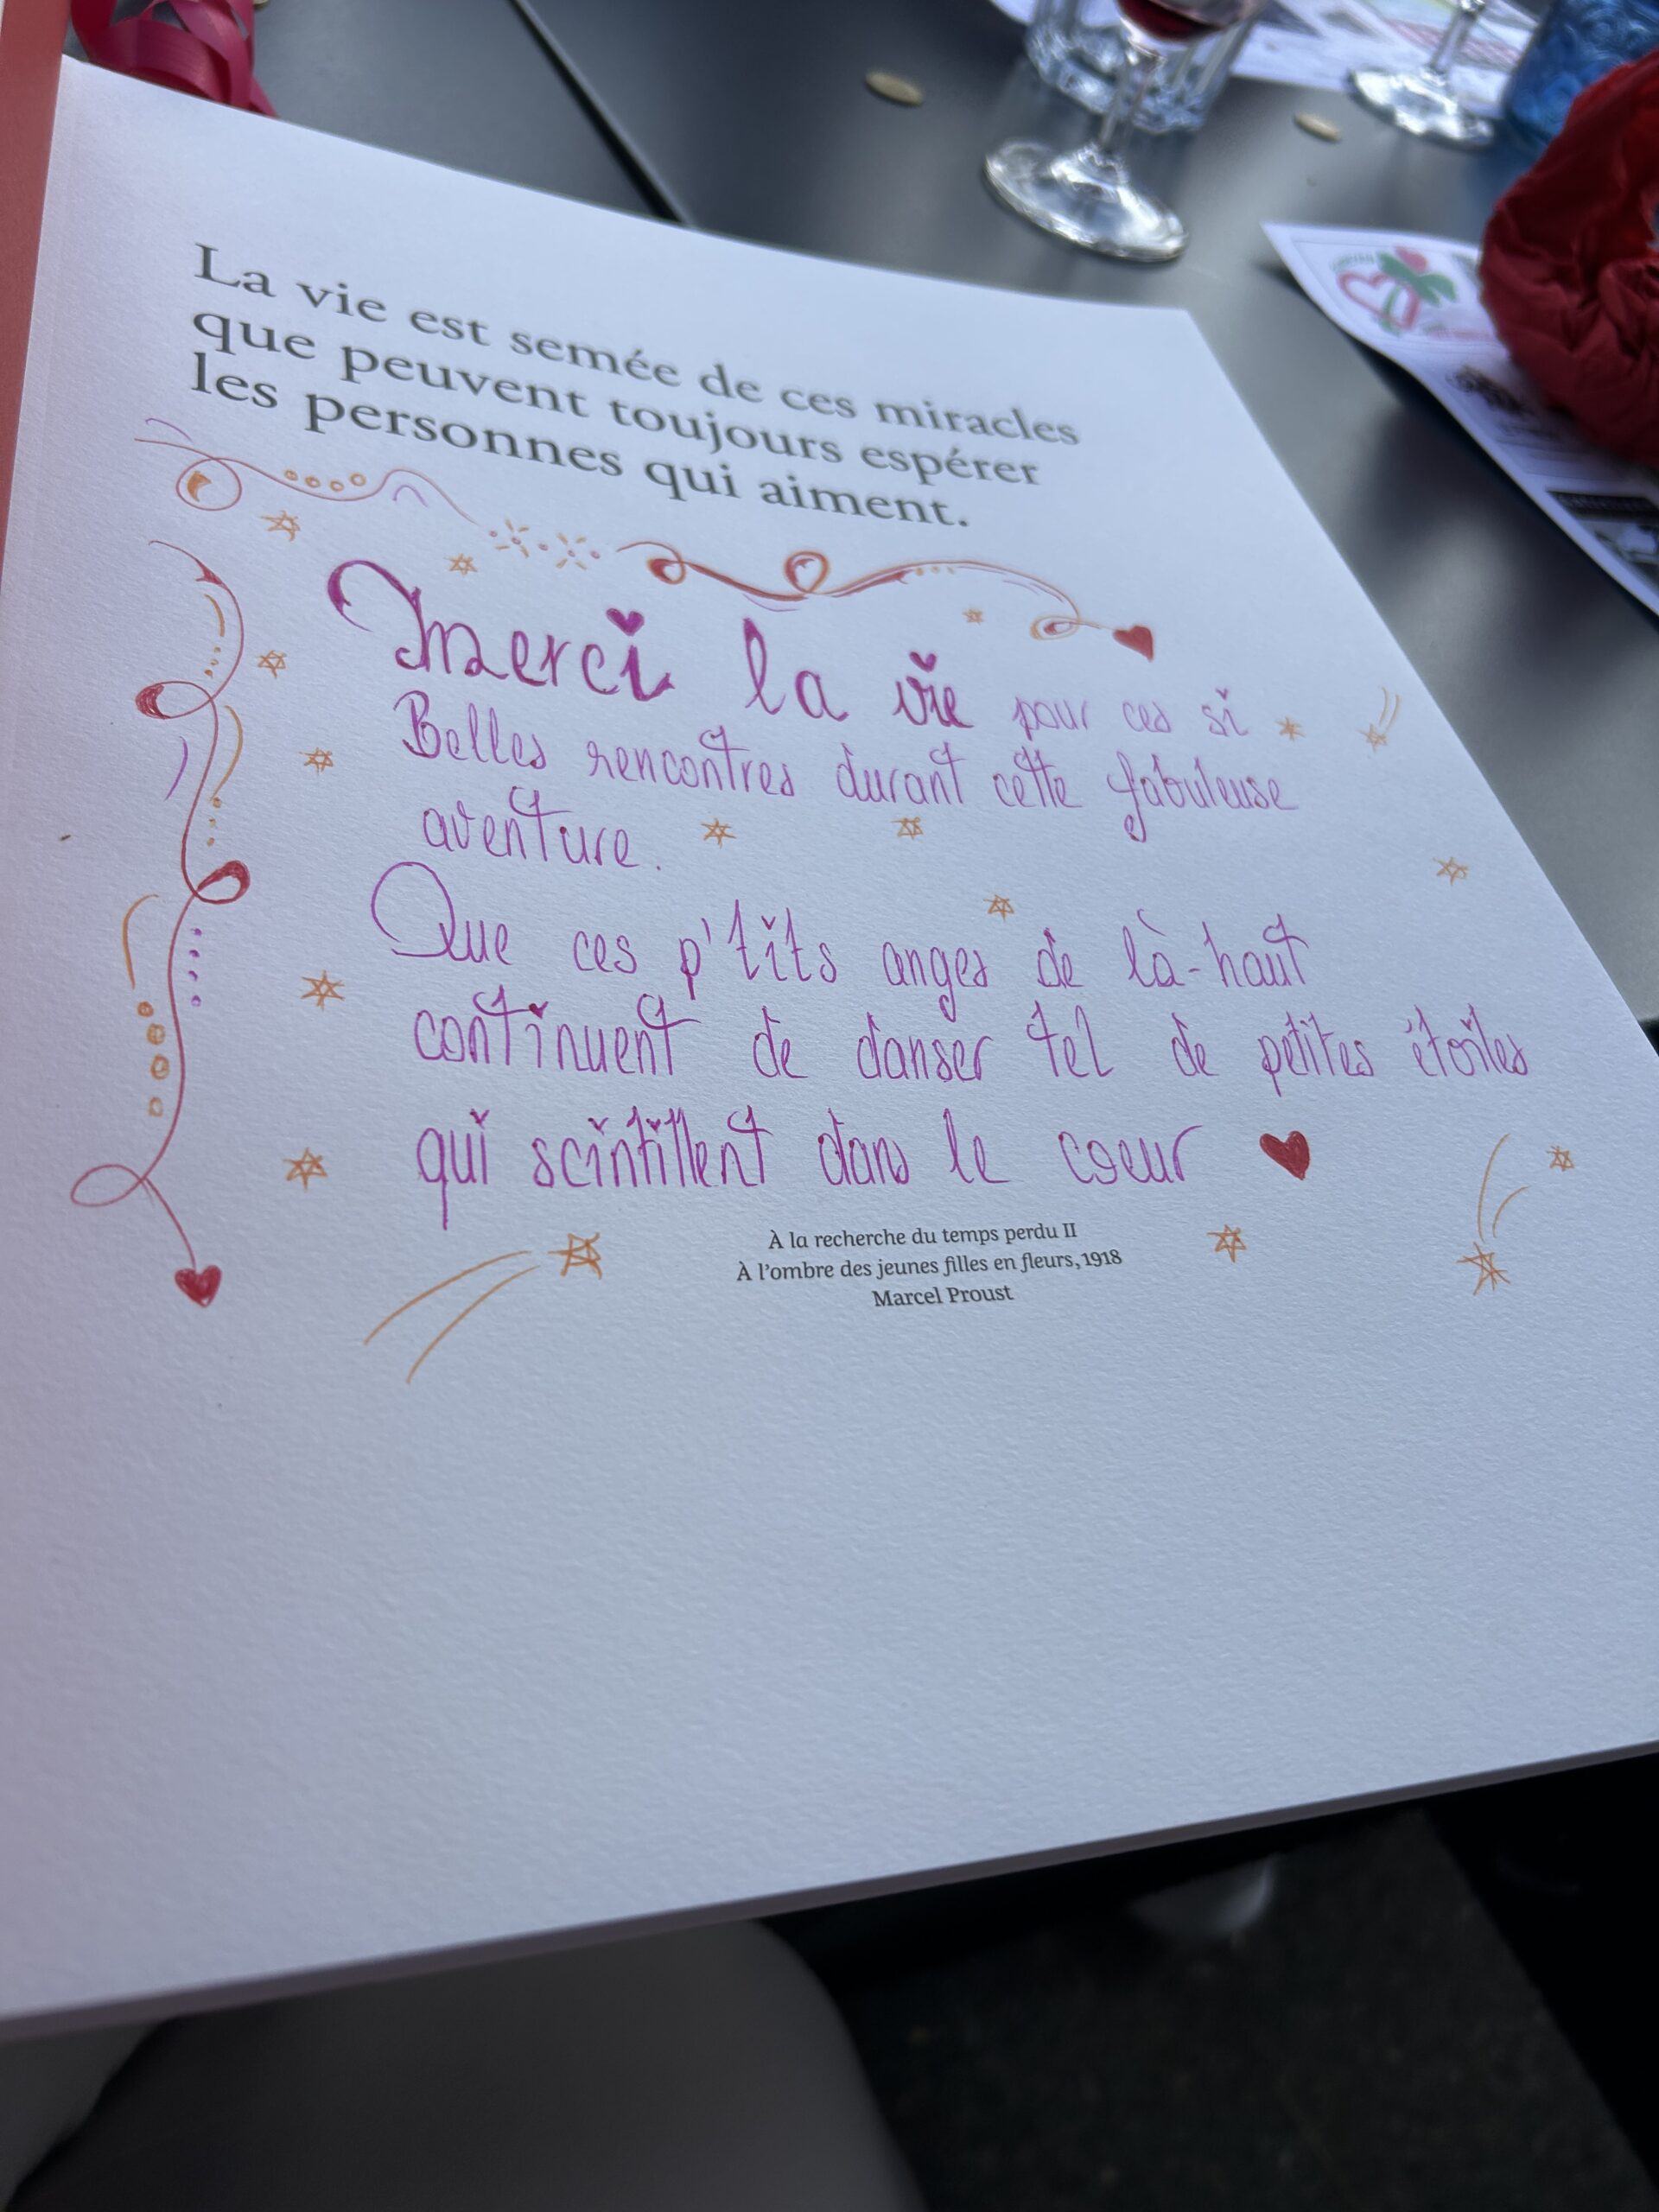 La vie est semée de ces miracles
que peuvent toujours espérer
les personnes qui aiment.
Merci la vie pour ces si
Belles rencontres durant cette fabuleuse
aventure.
Que ces p'tits anges de là-haut
continuent de danser tel de petites étoiles
qui scintillent dans le coeur
À la recherche du temps perdu II
À l'ombre des jeunes filles en fleurs, 1918
Marcel Proust